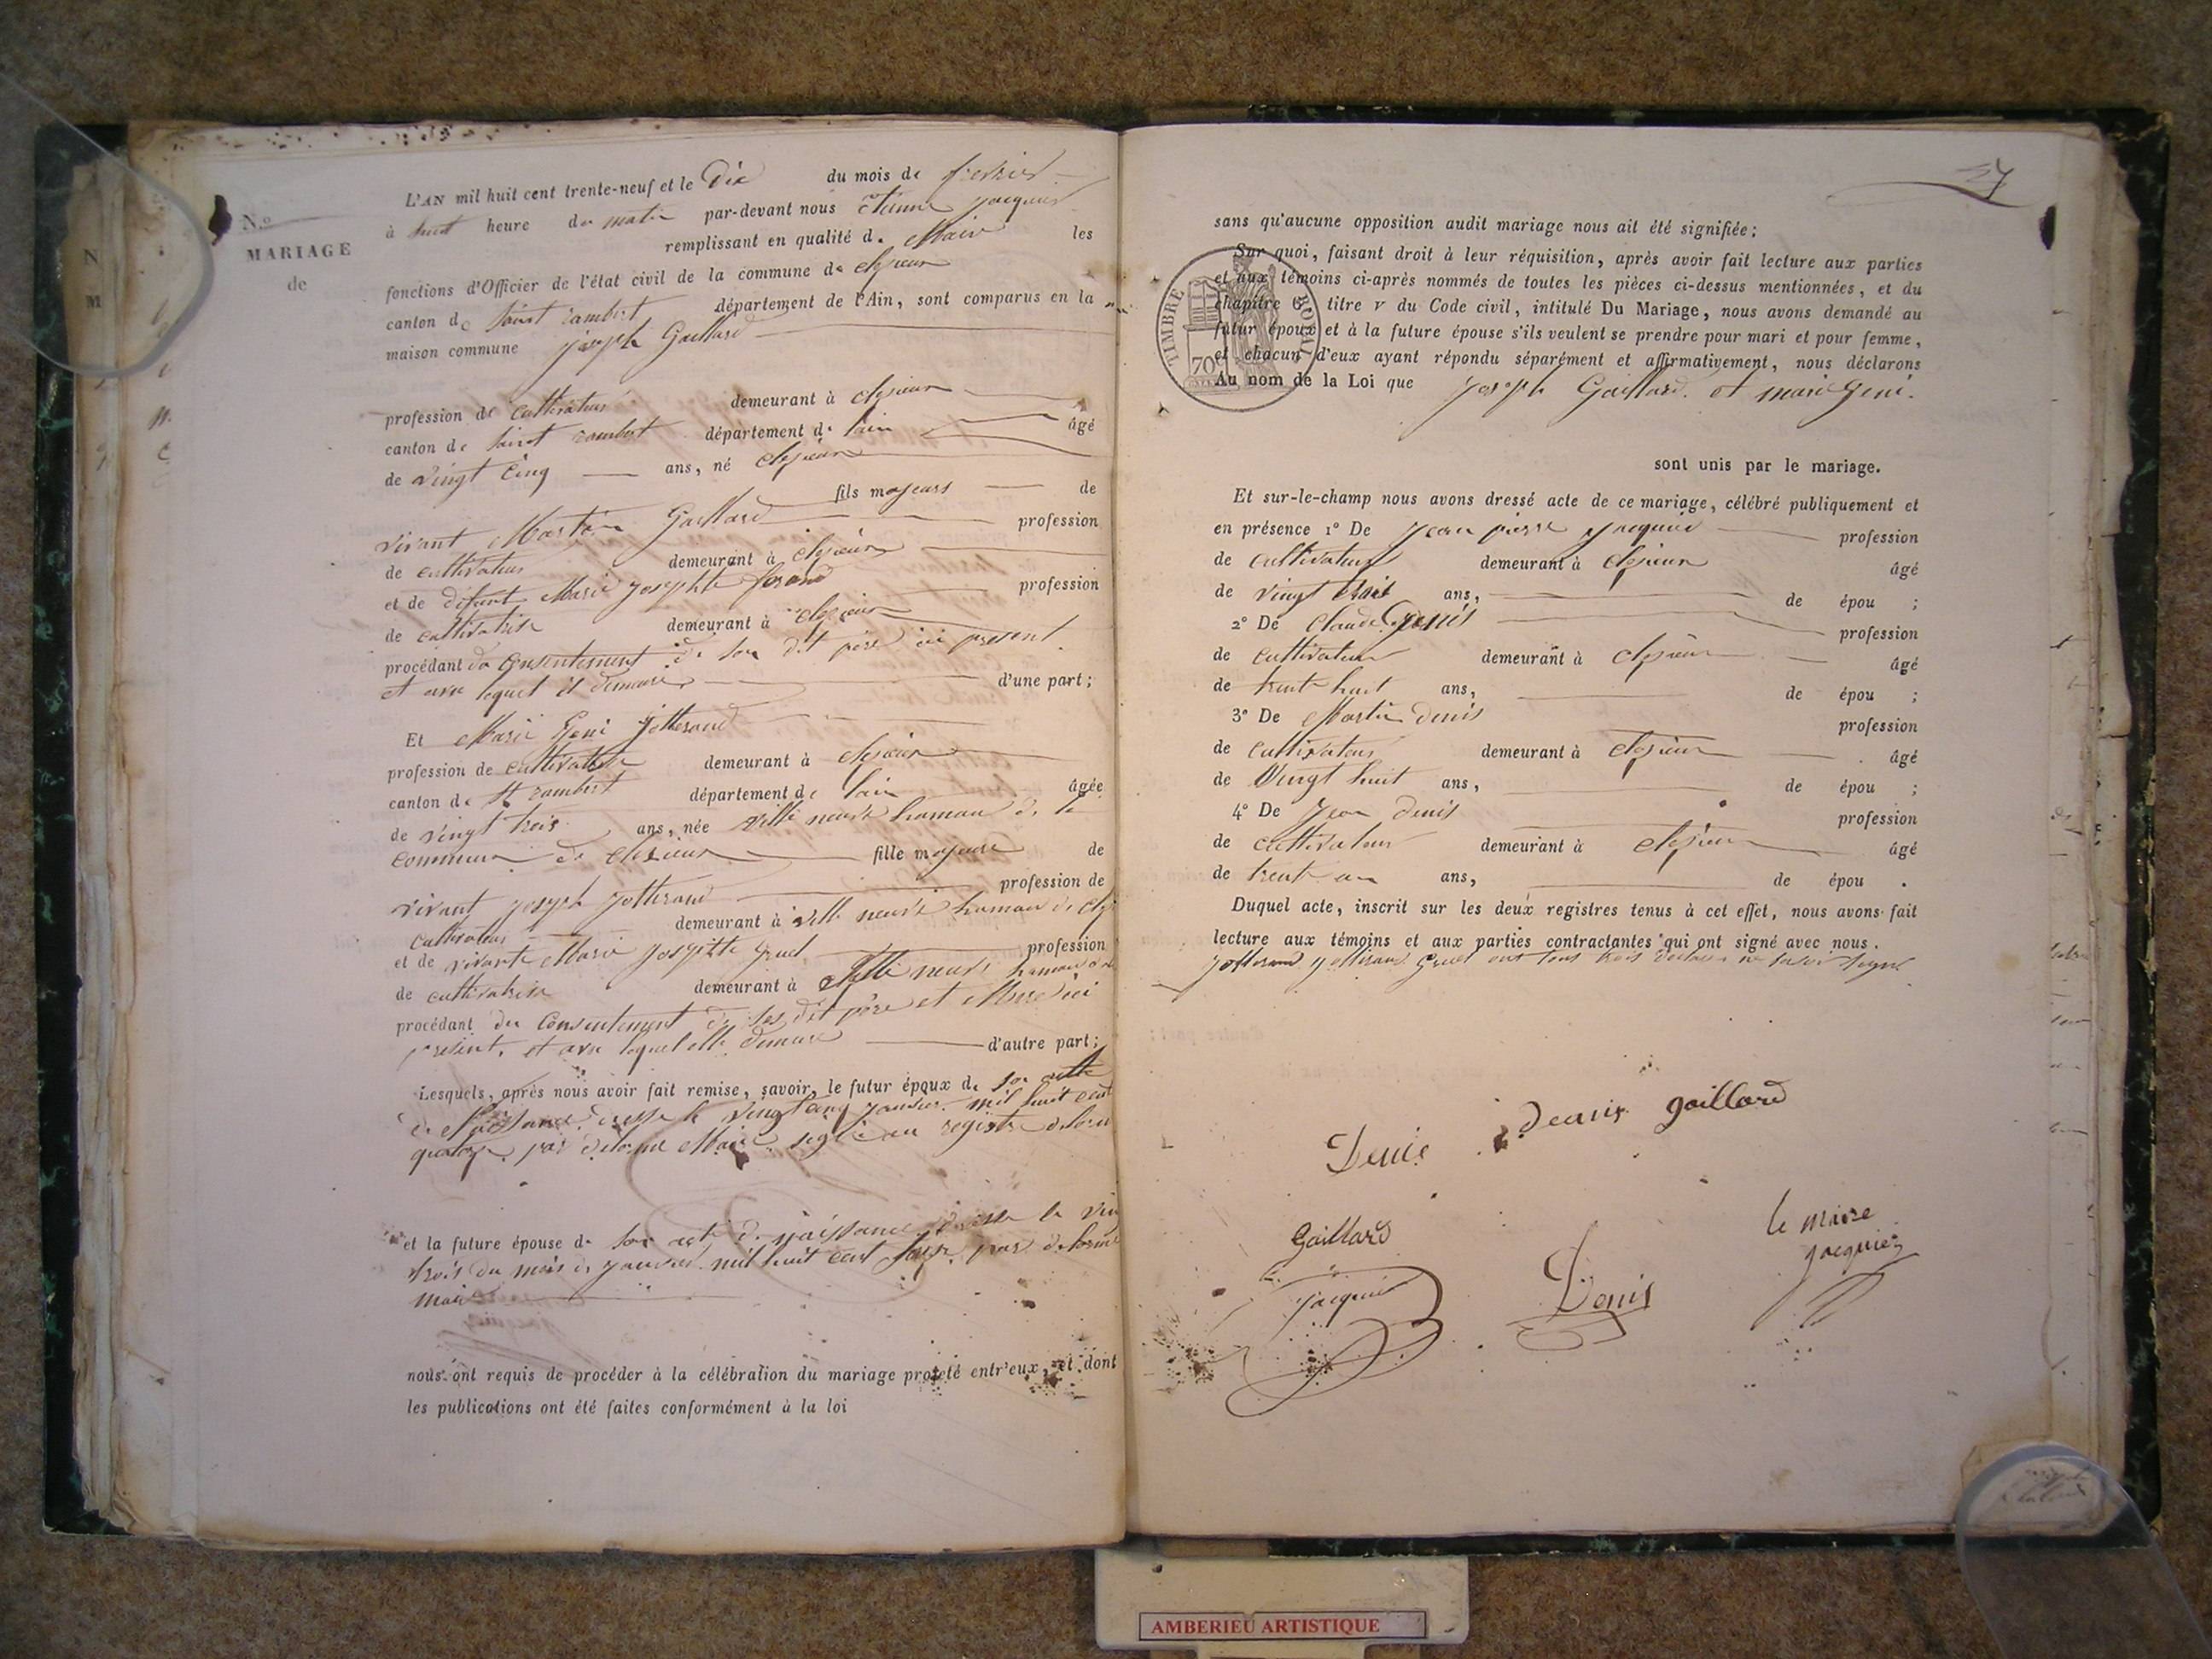 N.o
MARIAGE
de
L'AN mil huit cent trente-neuf et le Dix du mois de fevrier
à huit heure du matin par-devant nous Etienne Jacquier
remplissant en qualité de Maire les
fonctions d'Officier de l'état civil de la commune de cleyzieu
canton de saint rambert département de l'Ain, sont comparus en la
maison commune joseph Gaillard
profession de cultivateur demeurant à
canton de saint rambert département de lain âgé
de vingt cinq ans, né
fils majeurs de
vivant Martin Gaillard profession
de cultivateur demeurant à
et de defunt Marie josephte profession
de cultivatrise demeurant à
procédant du consentement de son dit père ici present
et avec lequel il demeure d'une part;
Et Marie Geni Jotterand
profession de cultivatrise demeurant à
canton de St rambert département de lain âgée
de vingt trois ans, née ville neuve hamau de la
commune de fille majeure de
vivant joseph jotterand profession de
cultivateur demeurant à ville neuve hamau de
et de vivante Marie josephte gruel profession
de cultivatrise demeurant à ville neuve hamau
procédant du consentement de ses dit père et Mere ici
present, et avec lequel elle demeure d'autre part;
Lesquels, après nous avoir fait remise, savoir, le futur époux de son acte
de Naissance dressé le vingt cinq janvier mil huit cent
quatorze par delorme Maire registre
et la future épouse de son acte de naissance dressé le
trois du mois de janvier mil huit cent seize par delorme
maire
nous ont requis de procéder à la célébration du mariage projeté entr'eux, et dont
les publications ont été faites conformément à la loi
27
sans qu'aucune opposition audit mariage nous ait été signifiée;
Sur quoi, faisant droit à leur réquisition, après avoir fait lecture aux parties
et aux témoins ci-après nommés de toutes les pièces ci-dessus mentionnées, et du
chapitre 6 titre V du Code civil, intitulé Du Mariage, nous avons demandé au
futur époux et à la future épouse s'ils veulent se prendre pour mari et pour femme,
et chacun d'eux ayant répondu séparément et affirmativement, nous déclarons
Au nom de la Loi que joseph Gaillard. et marie geni.
TIMBRE ROYAL
70c
sont unis par le mariage.
Et sur-le-champ nous avons dressé acte de ce mariage, célébré publiquement et
en présence 1° De jean pierre jacquier profession
de cultivateur demeurant à âgé
de vingt trois ans, de épou ;
2° De Claude Denis profession
de cultivateur demeurant à âgé
de trente huit ans, de épou ;
3° De Martin denis profession
de cultivateur demeurant à âgé
de vingt huit ans, de épou ;
4° De Jean Denis profession
de cultivateur demeurant à âgé
de trente un ans, de épou .
Duquel acte, inscrit sur les deux registres tenus à cet effet, nous avons fait
lecture aux témoins et aux parties contractantes qui ont signé avec nous.
jotterand jotterand Gruel ont tous trois declaré ne savoir signé
Denis
denis gaillard
Gaillard
le maire
jacquier
jacquier
Denis
AMBERIEU ARTISTIQUE